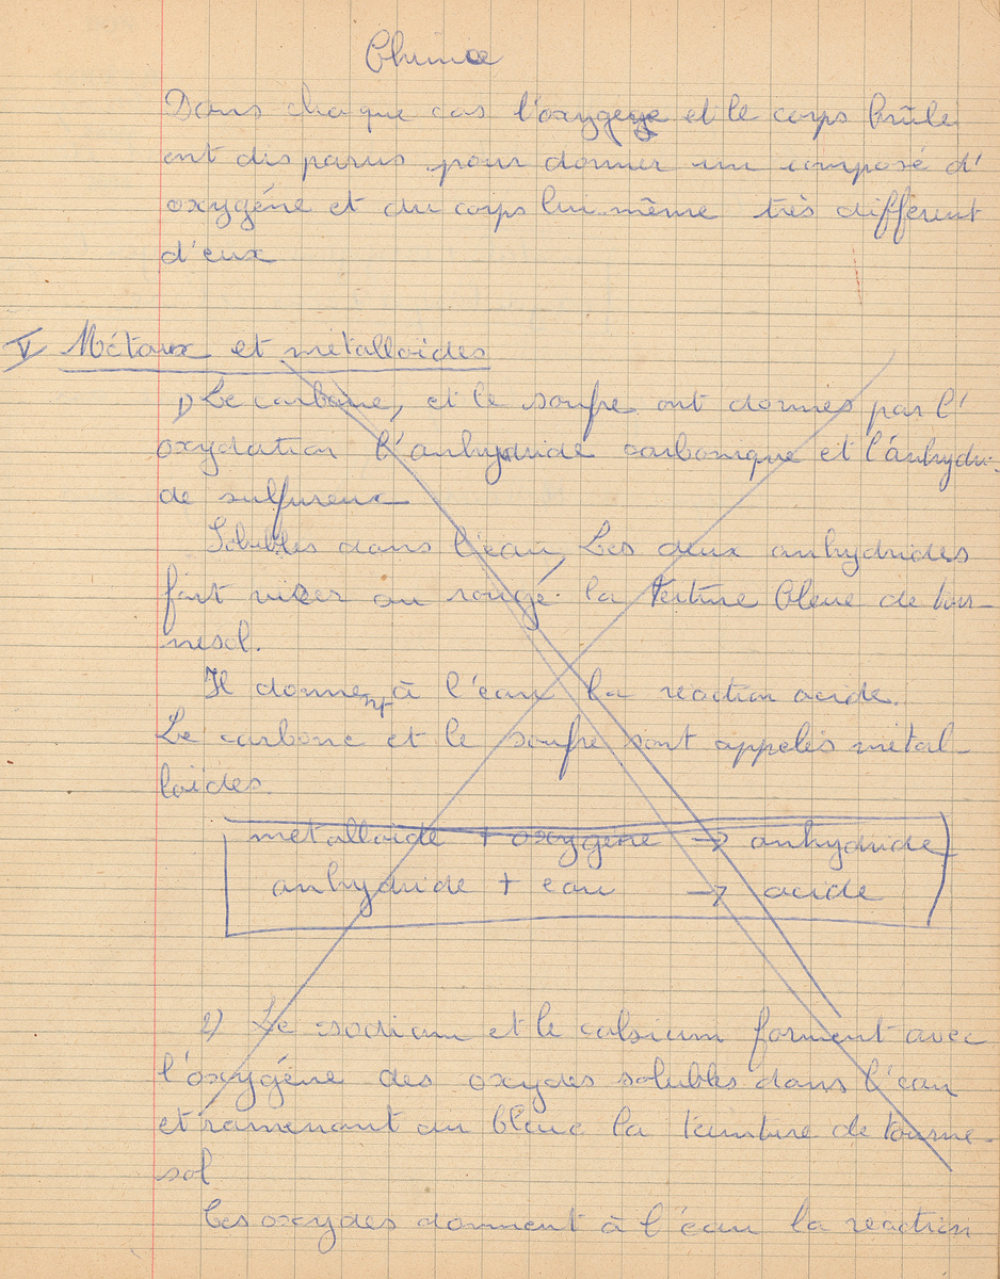 Chimie
Dans chaque cas l'oxygène et le corps brûle
ont disparus pour donner un composé d'
oxygéne et du corps lui-même très différent
d'eux
V Métaux et métalloïdes
1) Le carbone, et le soufre ont donnés par l'
oxydation l'anhydride carbonique et l'anhydri-
de sulfureux
Solubles dans l'eau, Les deux anhydrides
font virer au rouge la teinture bleue de tour-
nesol.
Il donnent à l'eau la reaction acide.
Le carbone et le soufre sont appelés métal-
loïdes.
metalloïde + oxygène → anhydride
anhydride + eau → acide
2) Le sodium et le calsium forment avec
l'oxygéne des oxydes solubles dans l'eau
et ramenant au bleue la teinture de tourne-
sol
Les oxydes donnent à l'eau la reaction